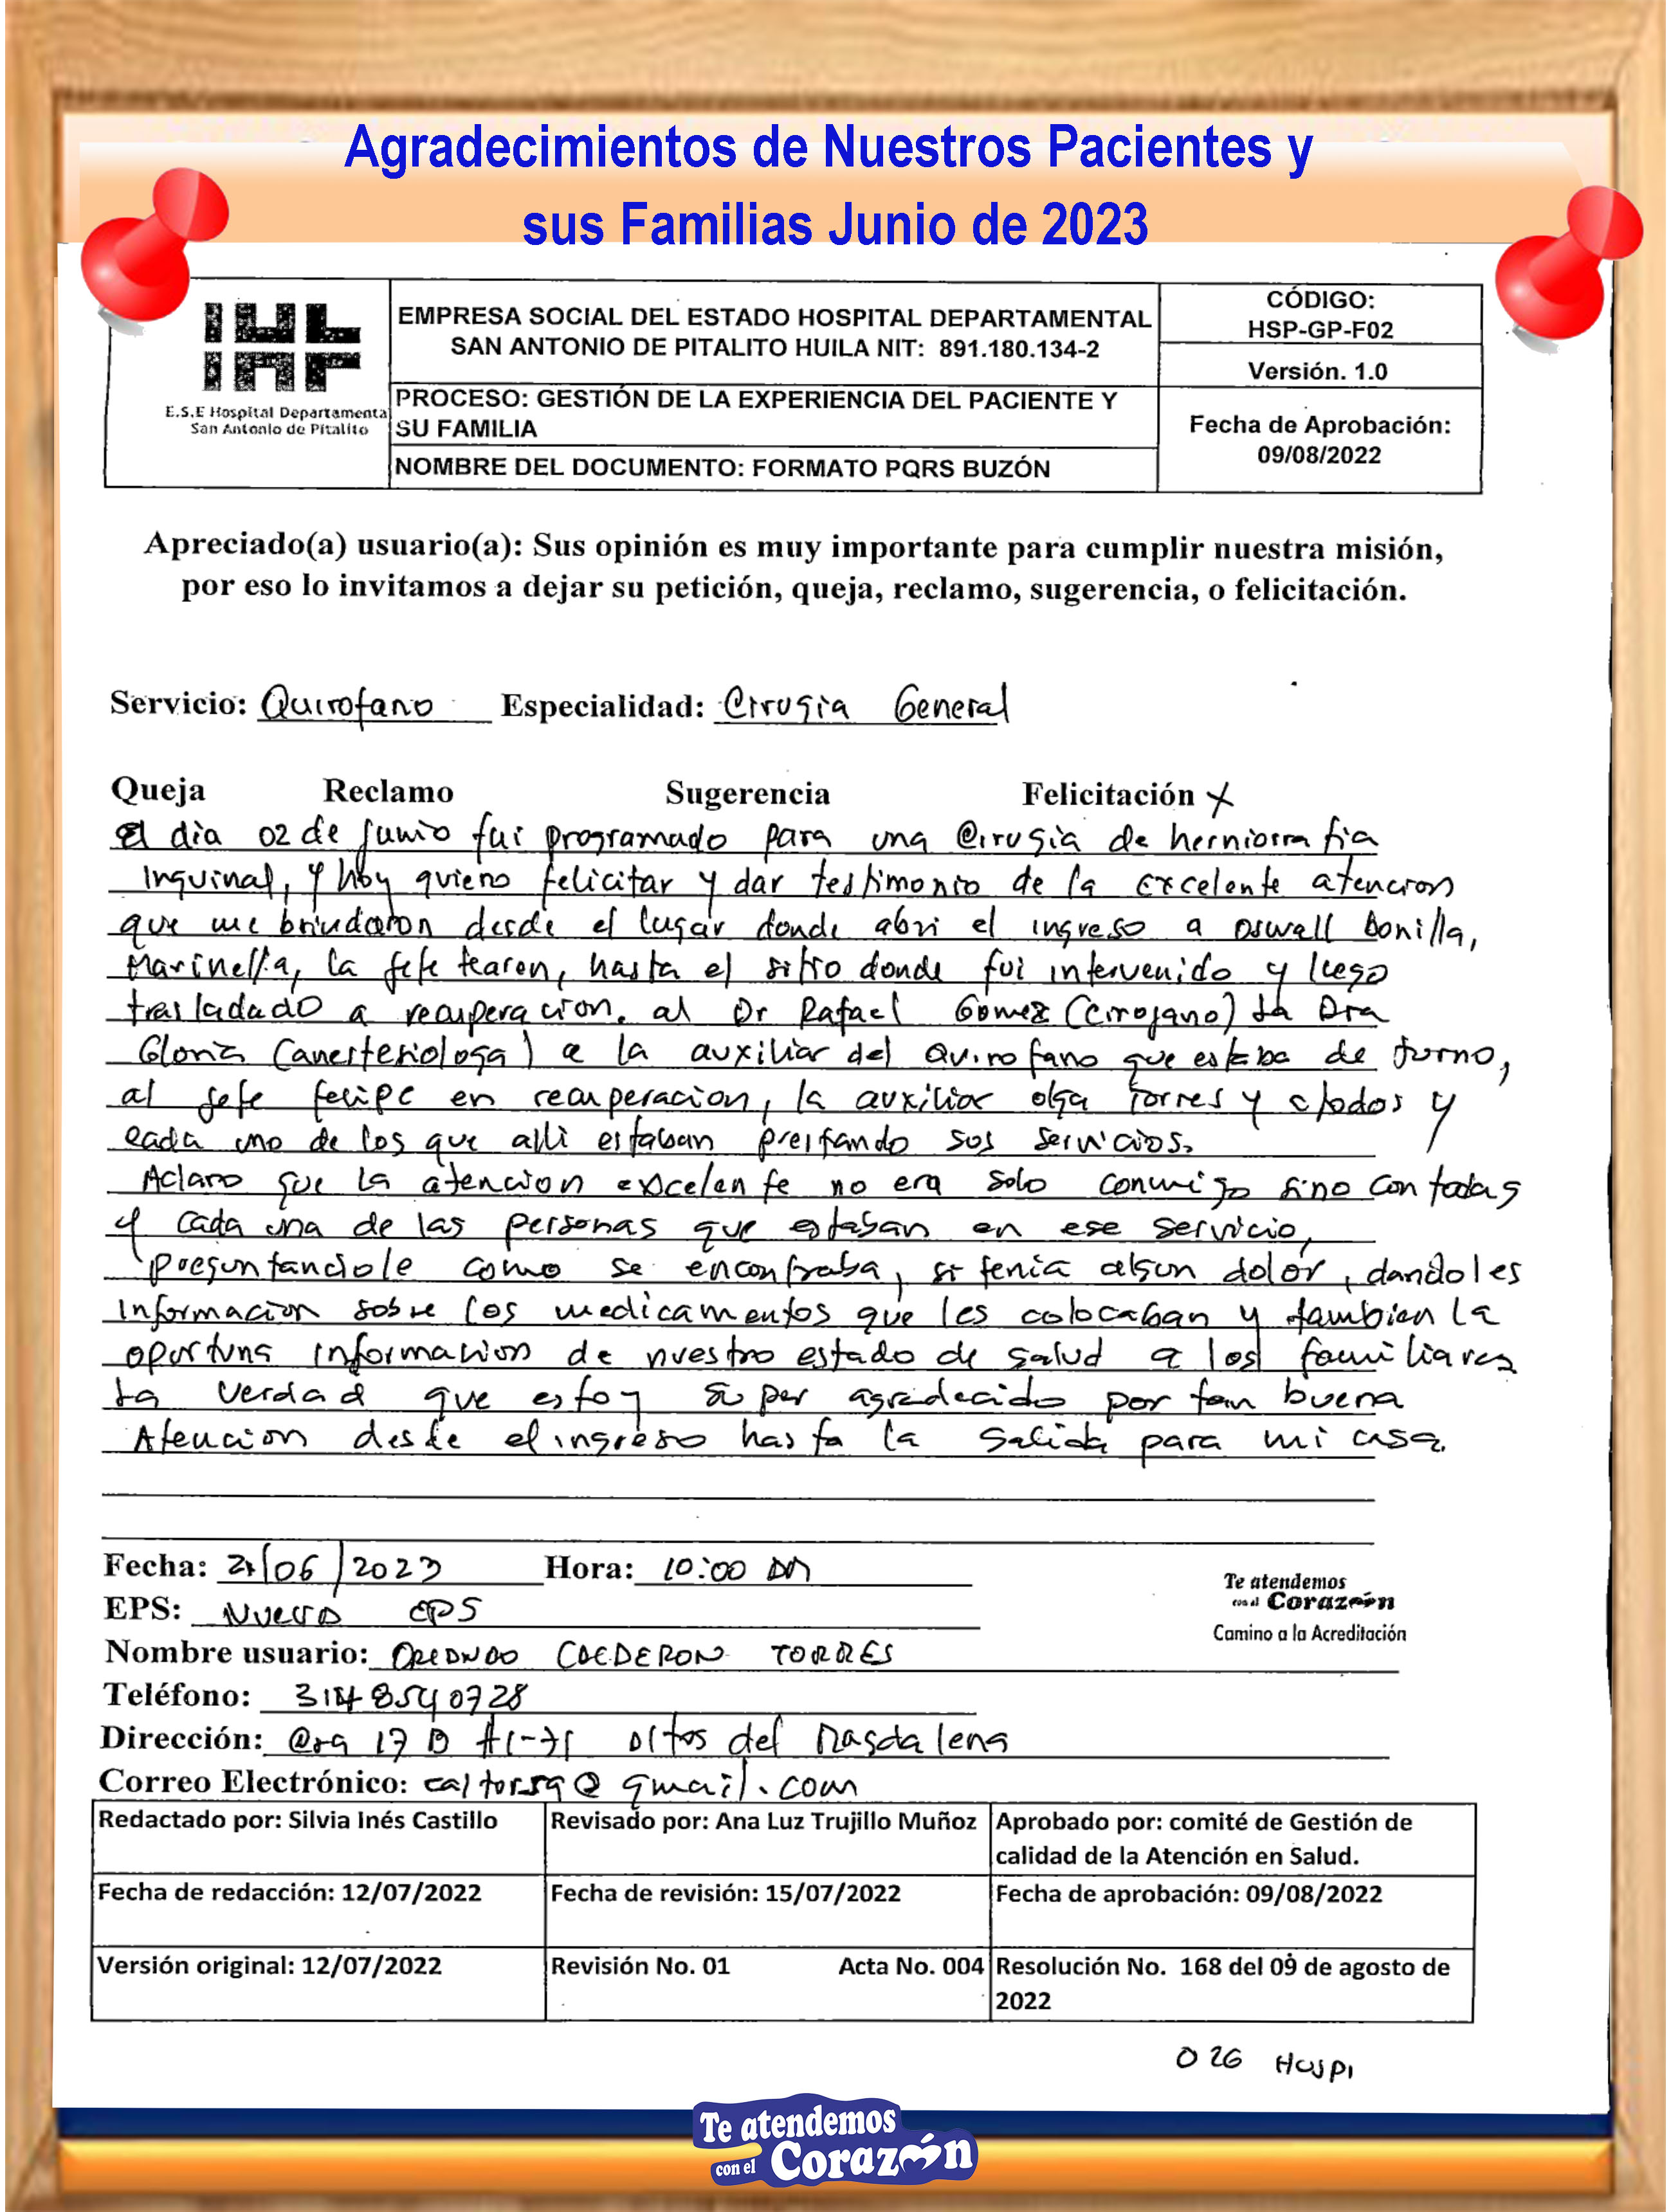 Agradecimientos de Nuestros Pacientes y
sus Familias Junio de 2023
E.S.E Hospital Departamental
San Antonio de Pitalito
EMPRESA SOCIAL DEL ESTADO HOSPITAL DEPARTAMENTAL
SAN ANTONIO DE PITALITO HUILA NIT: 891.180.134-2
PROCESO: GESTIÓN DE LA EXPERIENCIA DEL PACIENTE Y
SU FAMILIA
NOMBRE DEL DOCUMENTO: FORMATO PQRS BUZÓN
CÓDIGO:
HSP-GP-F02
Versión. 1.0
Fecha de Aprobación:
09/08/2022
Apreciado(a) usuario(a): Sus opinión es muy importante para cumplir nuestra misión,
por eso lo invitamos a dejar su petición, queja, reclamo, sugerencia, o felicitación.
Servicio: Quirofano Especialidad: Cirugia General
Queja Reclamo Sugerencia Felicitación X
El dia 02 de Junio fui programado para una Cirugia de herniorrafia
Inguinal, y hoy quiero felicitar y dar testimonio de la excelente atencion
que me brindaron desde el lugar donde abri el ingreso a Oswall Bonilla,
Marinella, la jefe Karen, hasta el sitio donde fui intervenido y luego
trasladado a recuperacion. al Dr Rafael Gomez (Cirojano) La Dra
Gloria (anestesiologa) a la auxiliar del Quirofano que estaba de turno,
al jefe felipe en recuperacion, la auxiliar olga Torres y a todos y
cada uno de los que alli estaban prestando sus servicios.
Aclaro que la atencion excelente no era solo conmigo sino con todas
y cada una de las personas que estaban en ese servicio,
preguntandole como se encontraba, si tenia algun dolor, dandoles
informacion sobre los medicamentos que les colocaban y tambien la
oportuna informacion de nuestro estado de salud a los familiares
La verdad que estoy super agradecido por tan buena
Atencion desde el ingreso hasta la salida para mi casa.
Fecha: 21/06/2023 Hora: 10:00 AM
EPS: NUEVA EPS
Nombre usuario: ORLANDO CALDERON TORRES
Teléfono: 3148540728
Dirección: Cra 17 B Altos del Magdalena
Correo Electrónico: @gmail.com
Te atendemos
con el Corazón
Camino a la Acreditación
Redactado por: Silvia Inés Castillo
Revisado por: Ana Luz Trujillo Muñoz
Aprobado por: comité de Gestión de
calidad de la Atención en Salud.
Fecha de redacción: 12/07/2022
Fecha de revisión: 15/07/2022
Fecha de aprobación: 09/08/2022
Versión original: 12/07/2022
Revisión No. 01 Acta No. 004
Resolución No. 168 del 09 de agosto de
2022
026 Hospi
Te atendemos
con el Corazón